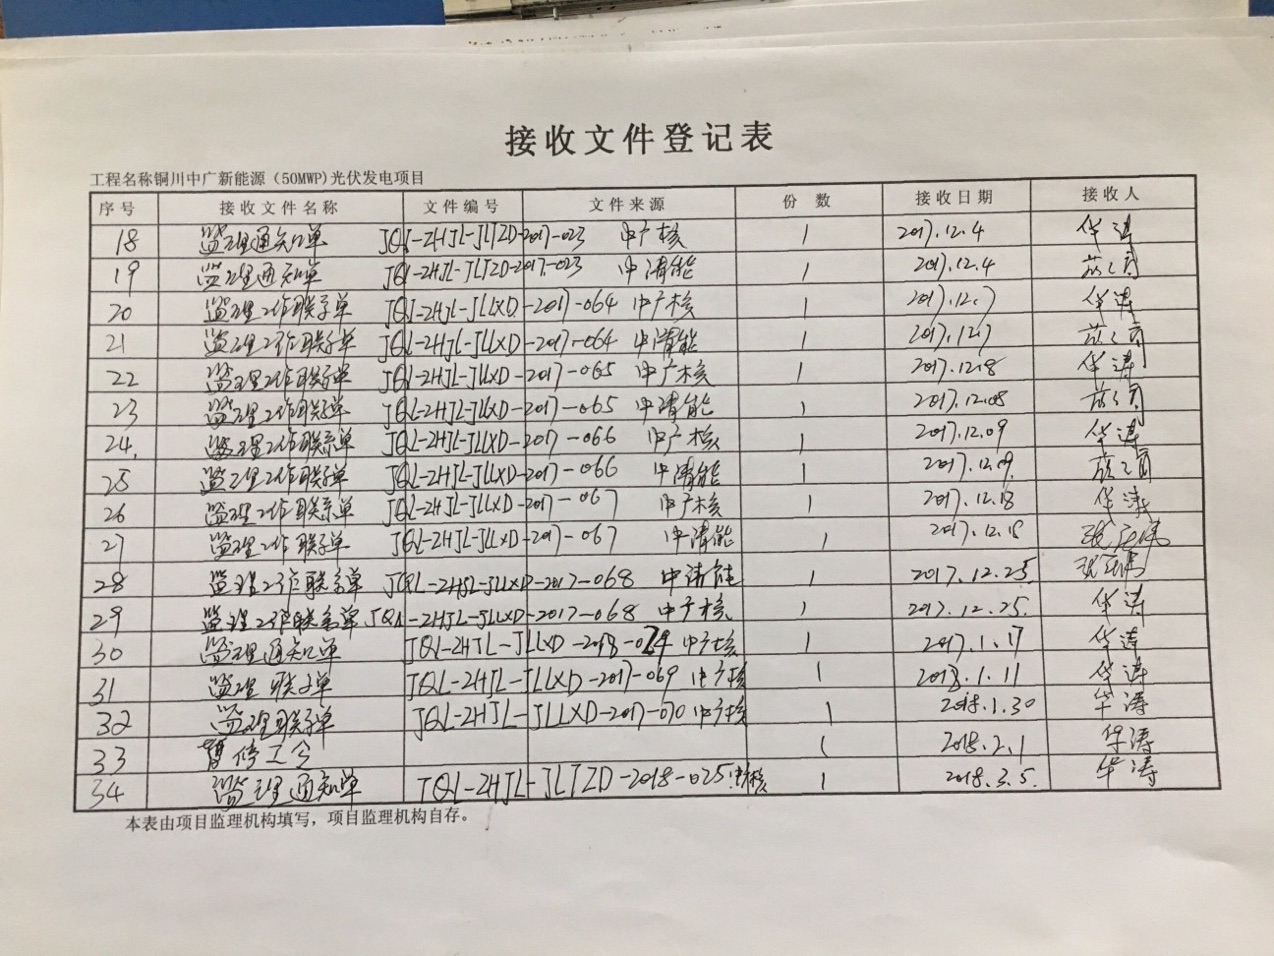 接收文件登记表
工程名称铜川中广新能源（50MWP)光伏发电项目
序号 接收文件名称 文件编号 文件来源 份 数 接收日期 接收人
18 监理通知单 JQL-ZHJL-JLTZD-2017-023 中广核 1 2017.12.4 华涛
19 监理通知单 JQL-ZHJL-JLTZD-2017-023 中清能 1 2017.12.4
20 监理工作联系单 JQL-ZHJL-JLLXD-2017-064 中广核 1 2017.12.7 华涛
21 监理工作联系单 JQL-ZHJL-JLLXD-2017-064 中清能 1 2017.12.7
22 监理工作联系单 JQL-ZHJL-JLLXD-2017-065 中广核 1 2017.12.8 华涛
23 监理工作联系单 JQL-ZHJL-JLLXD-2017-065 中清能 1 2017.12.08
24. 监理工作联系单 JQL-ZHJL-JLLXD-2017-066 中广核 1 2017.12.09 华涛
25 监理工作联系单 JQL-ZHJL-JLLXD-2017-066 中清能 1 2017.12.09.
26 监理工作联系单 JQL-ZHJL-JLLXD-2017-067 中广核 1 2017.12.18 华涛
27 监理工作联系单 JQL-ZHJL-JLLXD-2017-067 中清能 1 2017.12.18
28 监理工作联系单 JQL-ZHJL-JLLXD-2017-068 中清能 1 2017.12.25.
29 监理工作联系单 JQL-ZHJL-JLLXD-2017-068 中广核 1 2017.12.25. 华涛
30 监理通知单 JQL-ZHJL-JLLXD-2018-024 中广核 1 2017.1.17 华涛
31 监理联系单 JQL-ZHJL-JLLXD-2017-069 中广核 1 2018.1.11 华涛
32 监理联系单 JQL-ZHJL-JLLXD-2017-070 中广核 1 2018.1.30 华涛
33 暂停工令 1 2018.2.1 华涛
34 监理通知单 JQL-ZHJL-JLTZD-2018-025 中广核 1 2018.3.5. 华涛
本表由项目监理机构填写，项目监理机构自存。